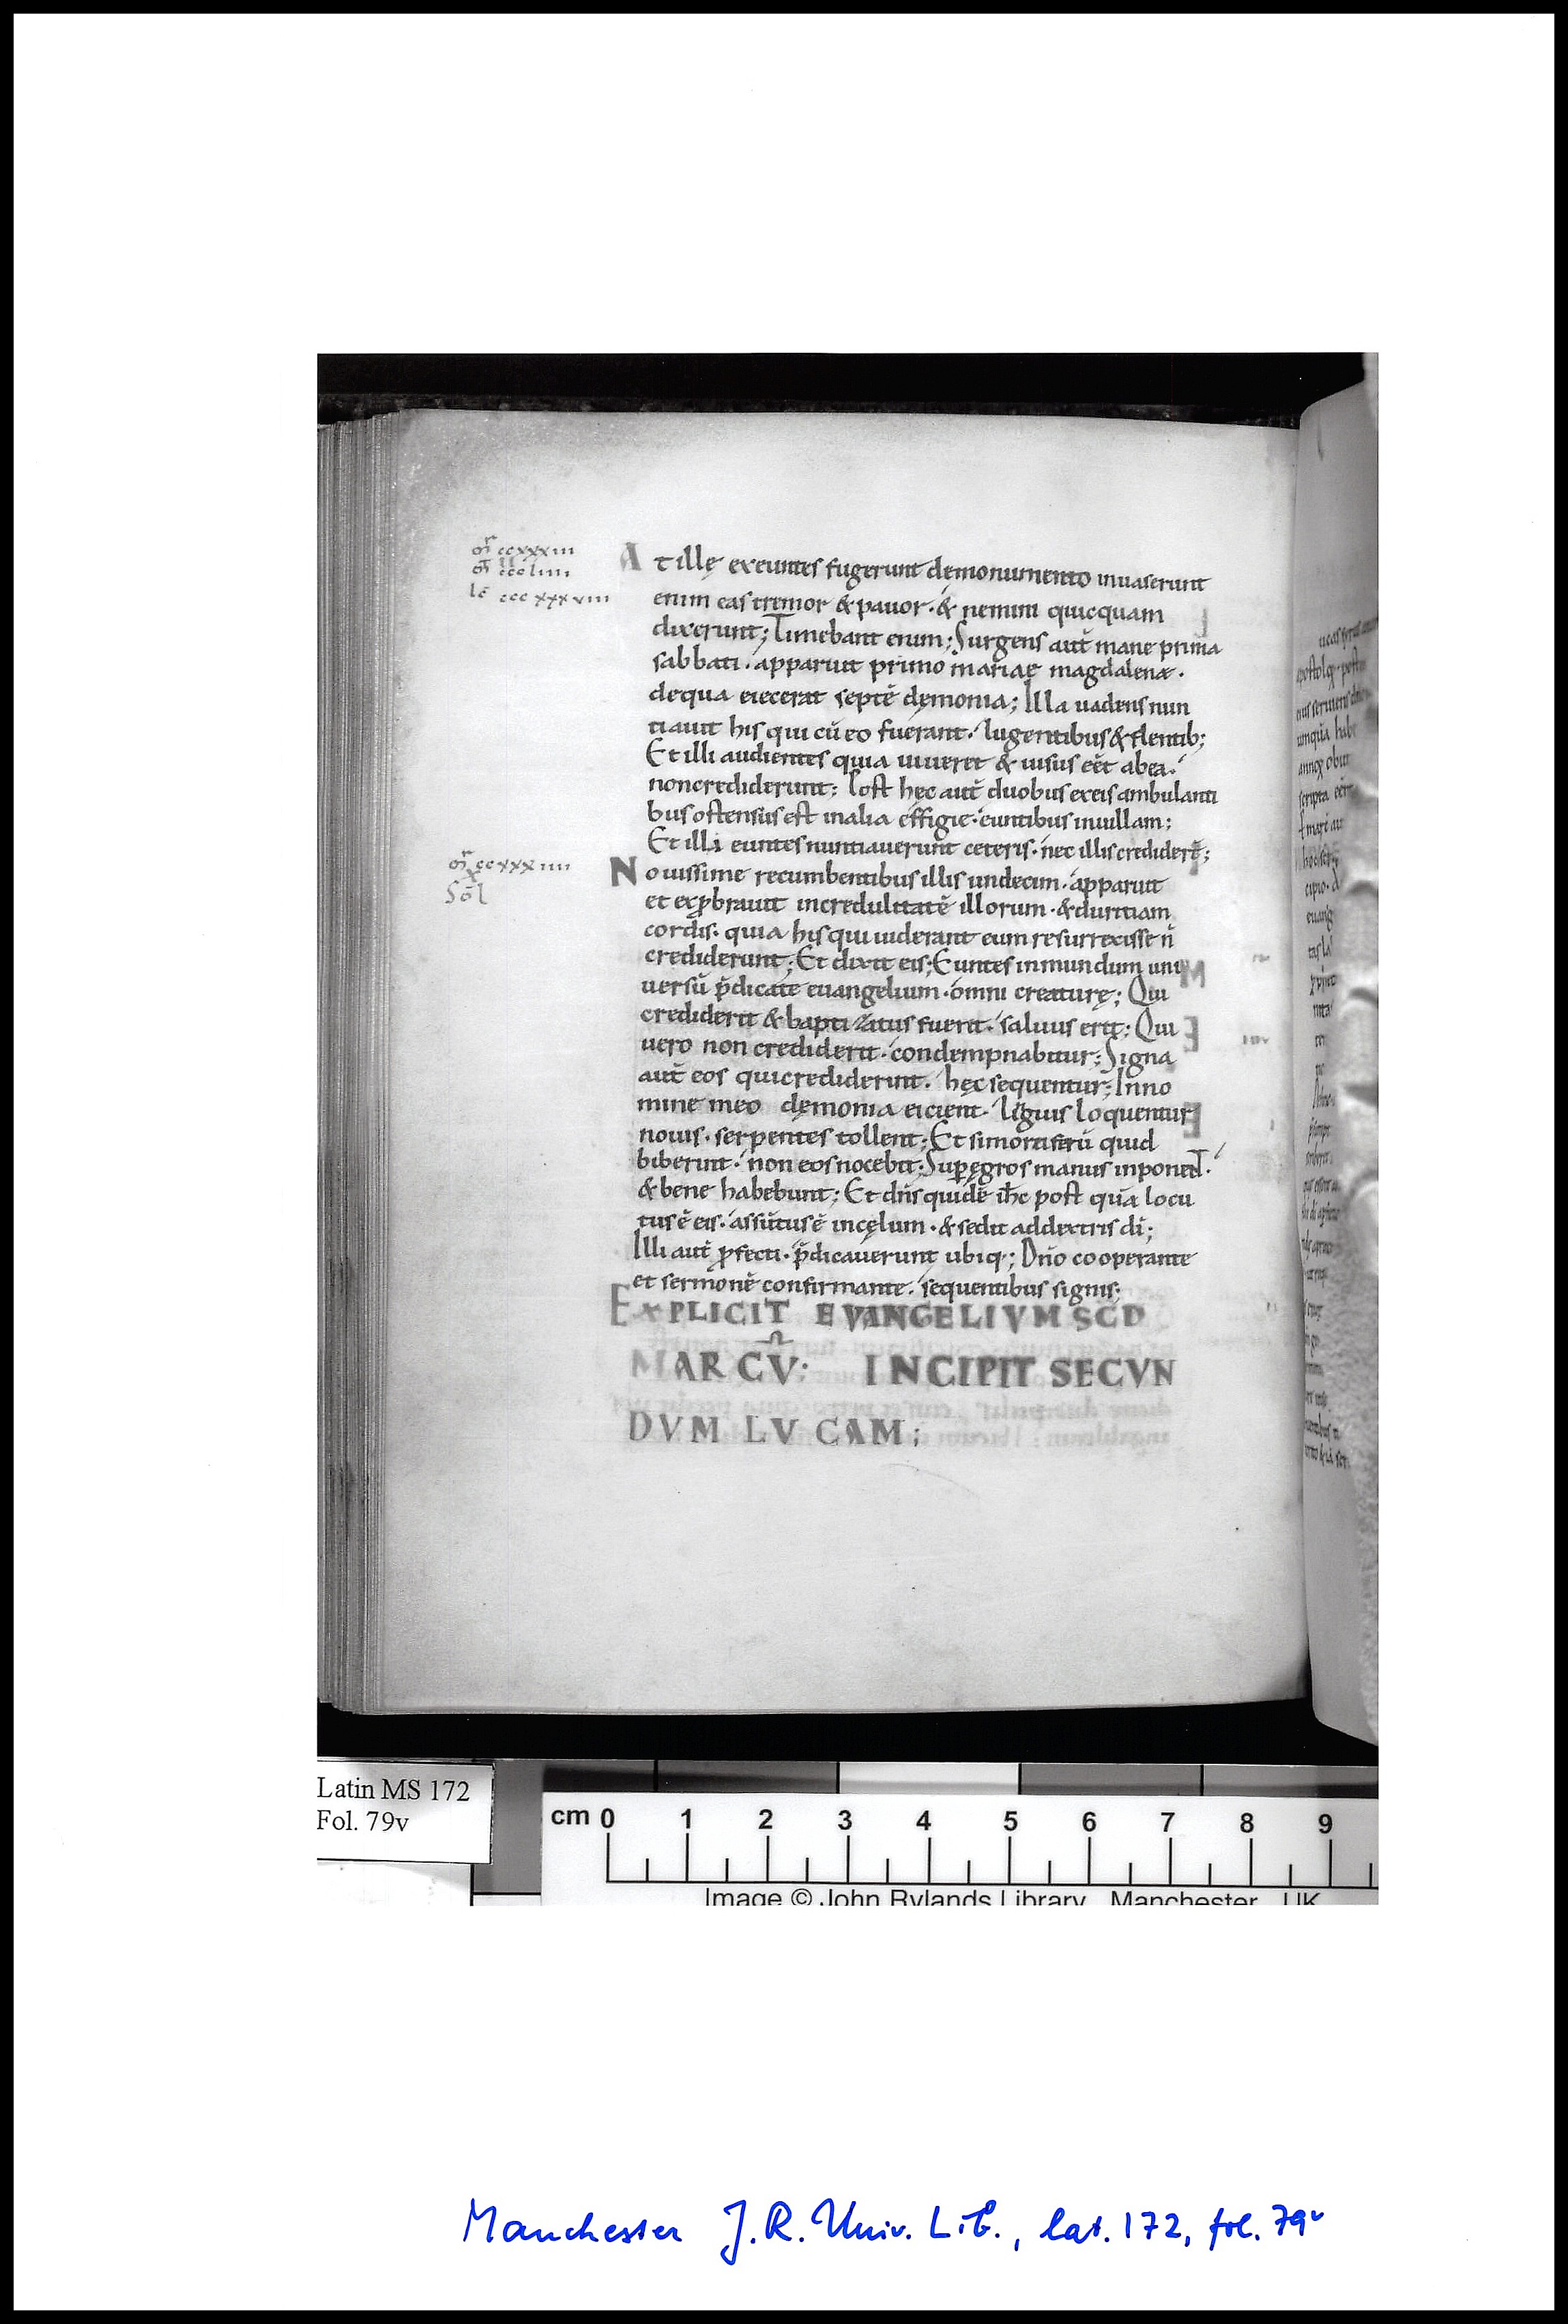 mr ccxxxiii
mt cccliiii
lc cccxxxviii
At illę exeuntes fugerunt demonumento inuaserunt
enim eas tremor & pauor· & nemini quicquam
dixerunt; Timebant enim; Surgens aut̄ mane prima
sabbati· apparuit primo mariae magdalenæ·
dequa eiecerat septē dęmonia; Illa uadens nun
tiauit his qui cū eo fuerant· lugentibus & flentib;
Et illi audientes quia uiueret & uisus eēt abea·
noncrediderunt; Post hęc aut̄ duobus exeis ambulanti
bus ostensus est inalia effigie· euntibus inuillam;
Et illi euntes nuntiauerunt ceteris· nec illis credider̄;
mr ccxxxiiii
Nouissime recumbentibus illis undecim· apparuit
et exꝓbrauit incredulitatē illorum· & duritiam
cordis· quia his qui uiderant eum resurrexisse n̄
crediderunt; Et dixit eis; Euntes inmundum uni
uersū p̄dicate euangelium· omni creaturę; Qui
crediderit & baptizatus fuerit· saluus erit; Qui
uero non crediderit· condempnabitur; Signa
aut̄ eos quicrediderint· hęc sequentur; Inno
mine meo dęmonia eicient· liguis loquentur
nouis· serpentes tollent; Et simortiferū quid
biberint· non eos nocebit; Suꝑ ęgros manus inponent·
& bene habebunt; Et dn̄s quidē ih̄c post quā locu
tus ē eis· assūtus ē incęlum· & sedit addextris dī;
Illi aut̄ ꝓfecti· p̄dicauerunt ubiq·; Dn̄o cooperante
et sermonē confirmante· sequentibus signis;
EXPLICIT EVANGELIVM SCD
MARCV: INCIPIT SECVN
DVM LVCAM;
Latin MS 172
Fol. 79v
cm 0 1 2 3 4 5 6 7 8 9
Image © John Rylands Library, Manchester, UK
Manchester J.R. Univ. Lib., lat. 172, fol. 79v